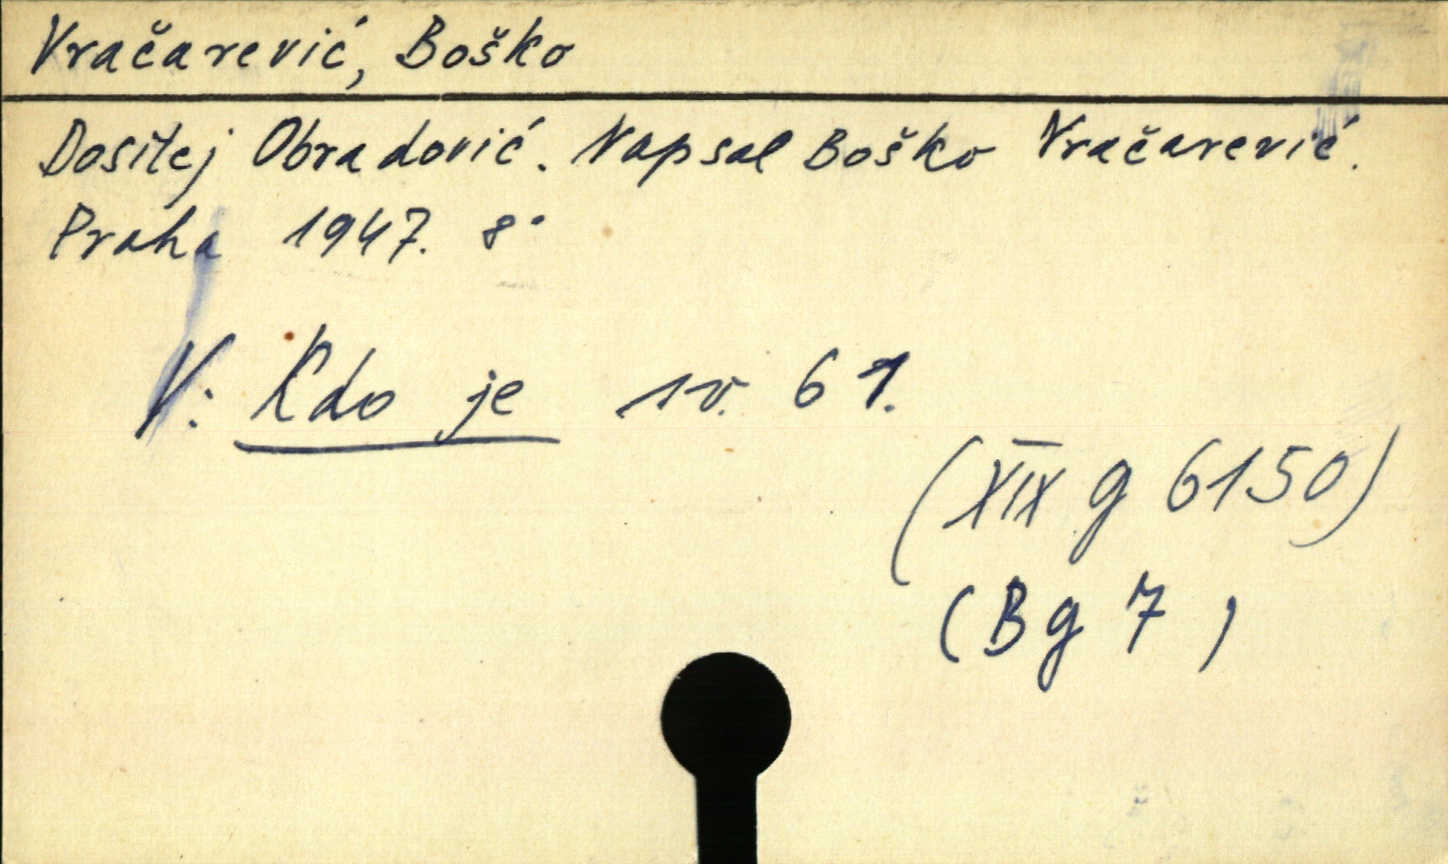 Vračarević, Boško
Dositej Obradović. Napsal Boško Vračarević.
Praha 1947. 8°
V: Kdo je sv. 61.
(XIX g 6150)
(Bg 7)